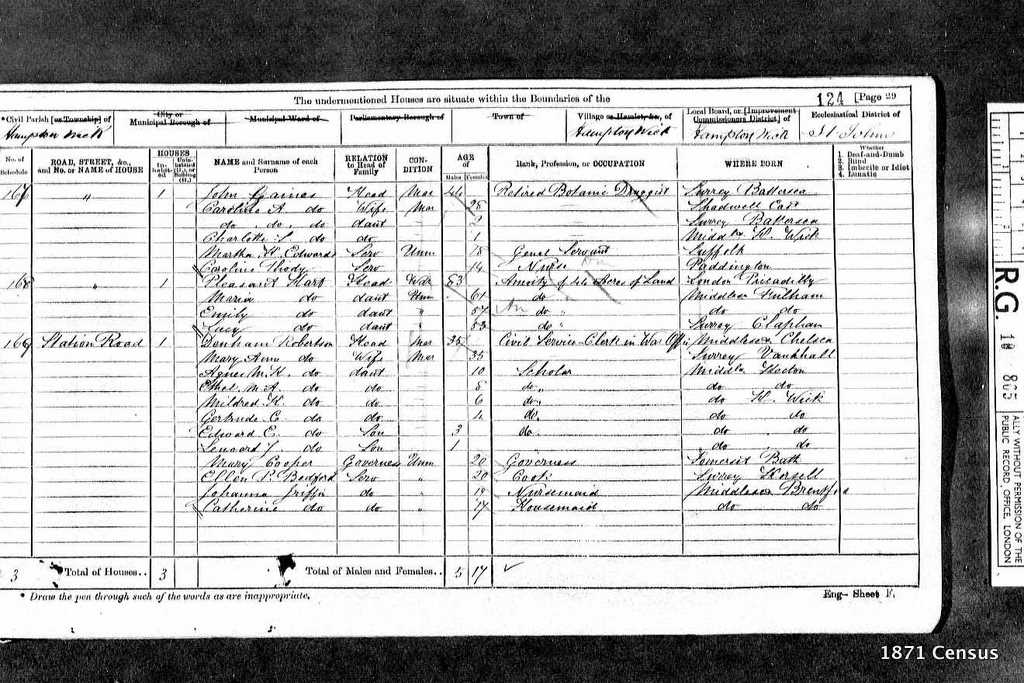 124 [Page 29
The undermentioned Houses are situate within the Boundaries of the
* Civil Parish [or Township] of
City or Municipal Borough of
Municipal Ward of
Parliamentary Borough of
Town of
Village or Hamlet, &c., of
Local Board, or [Improvement Commissioners District] of
Ecclesiastical District of
Hampton Wick Hampton Wick Hampton Wick St Johns
No. of Schedule
ROAD, STREET, &c., and No. or NAME of HOUSE
HOUSES
Inhabited
Uninhabited (U.), or Building (B.)
NAME and Surname of each Person
RELATION to Head of Family
CONDITION
AGE of
Males Females
Rank, Profession, or OCCUPATION
WHERE BORN
Whether
1. Deaf-and-Dumb
2. Blind
3. Imbecile or Idiot
4. Lunatic
167 " 1 John Gaines Head Mar 44 Retired Botanic Druggist Surrey Battersea
Caroline A. do Wife Mar 28 Shadwell
do do do daut 2 Surrey Battersea
Charlotte S. do do 1 Middx H. Wick
Martha H. Edwards Serv Unm 18 Genel Servant Suffolk
Caroline Serv 14 Nurse Paddington
168 " 1 Pleasant Hart Head 83 of Land London Piccadilly
Maria do daut Unm 64 do Middlesex Fulham
Emily do daut " 57 do do do
Lucy do daut " 53 do " Surrey Clapham
169 Station Road 1 Denham Robertson Head Mar 35 Civil Service-Clerk in War Office Middlesex Chelsea
Mary Anne do Wife Mar 35 Surrey Vauxhall
Agnes M. H. do daut 10 Scholar Middlx Heston
Ethel M. A. do do 8 do do do
Mildred H. do do 6 do do H. Wick
Gertrude C. do do 4 do do do
Edward C. do Son 3 do do do
do Son 1 do do
Mary Cooper Governess Unm 20 Governess Somerset Bath
Ellen P. Bedford Serv " 20 Cook Surrey Horsell
Johanna Griffin do " 19 Nursemaid Middlesex
Catherine do do " 17 Housemaid do do
3 Total of Houses.. 3 Total of Males and Females.. 5 17
* Draw the pen through such of the words as are inappropriate.
Eng— Sheet F.
R.G. 10
ALLY WITHOUT PERMISSION OF THE
PUBLIC RECORD OFFICE, LONDON
1871 Census